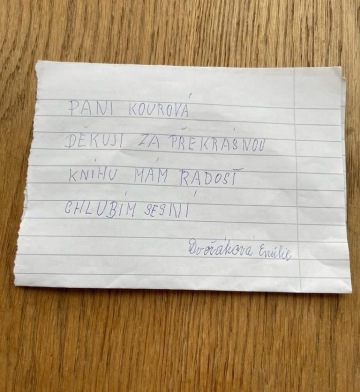 PANÍ KOUROVÁ
DĚKUJI ZA PŘEKRÁSNOU
KNIHU MÁM RADOST
CHLUBÍM SE S NÍ
Dvořáková Emilie